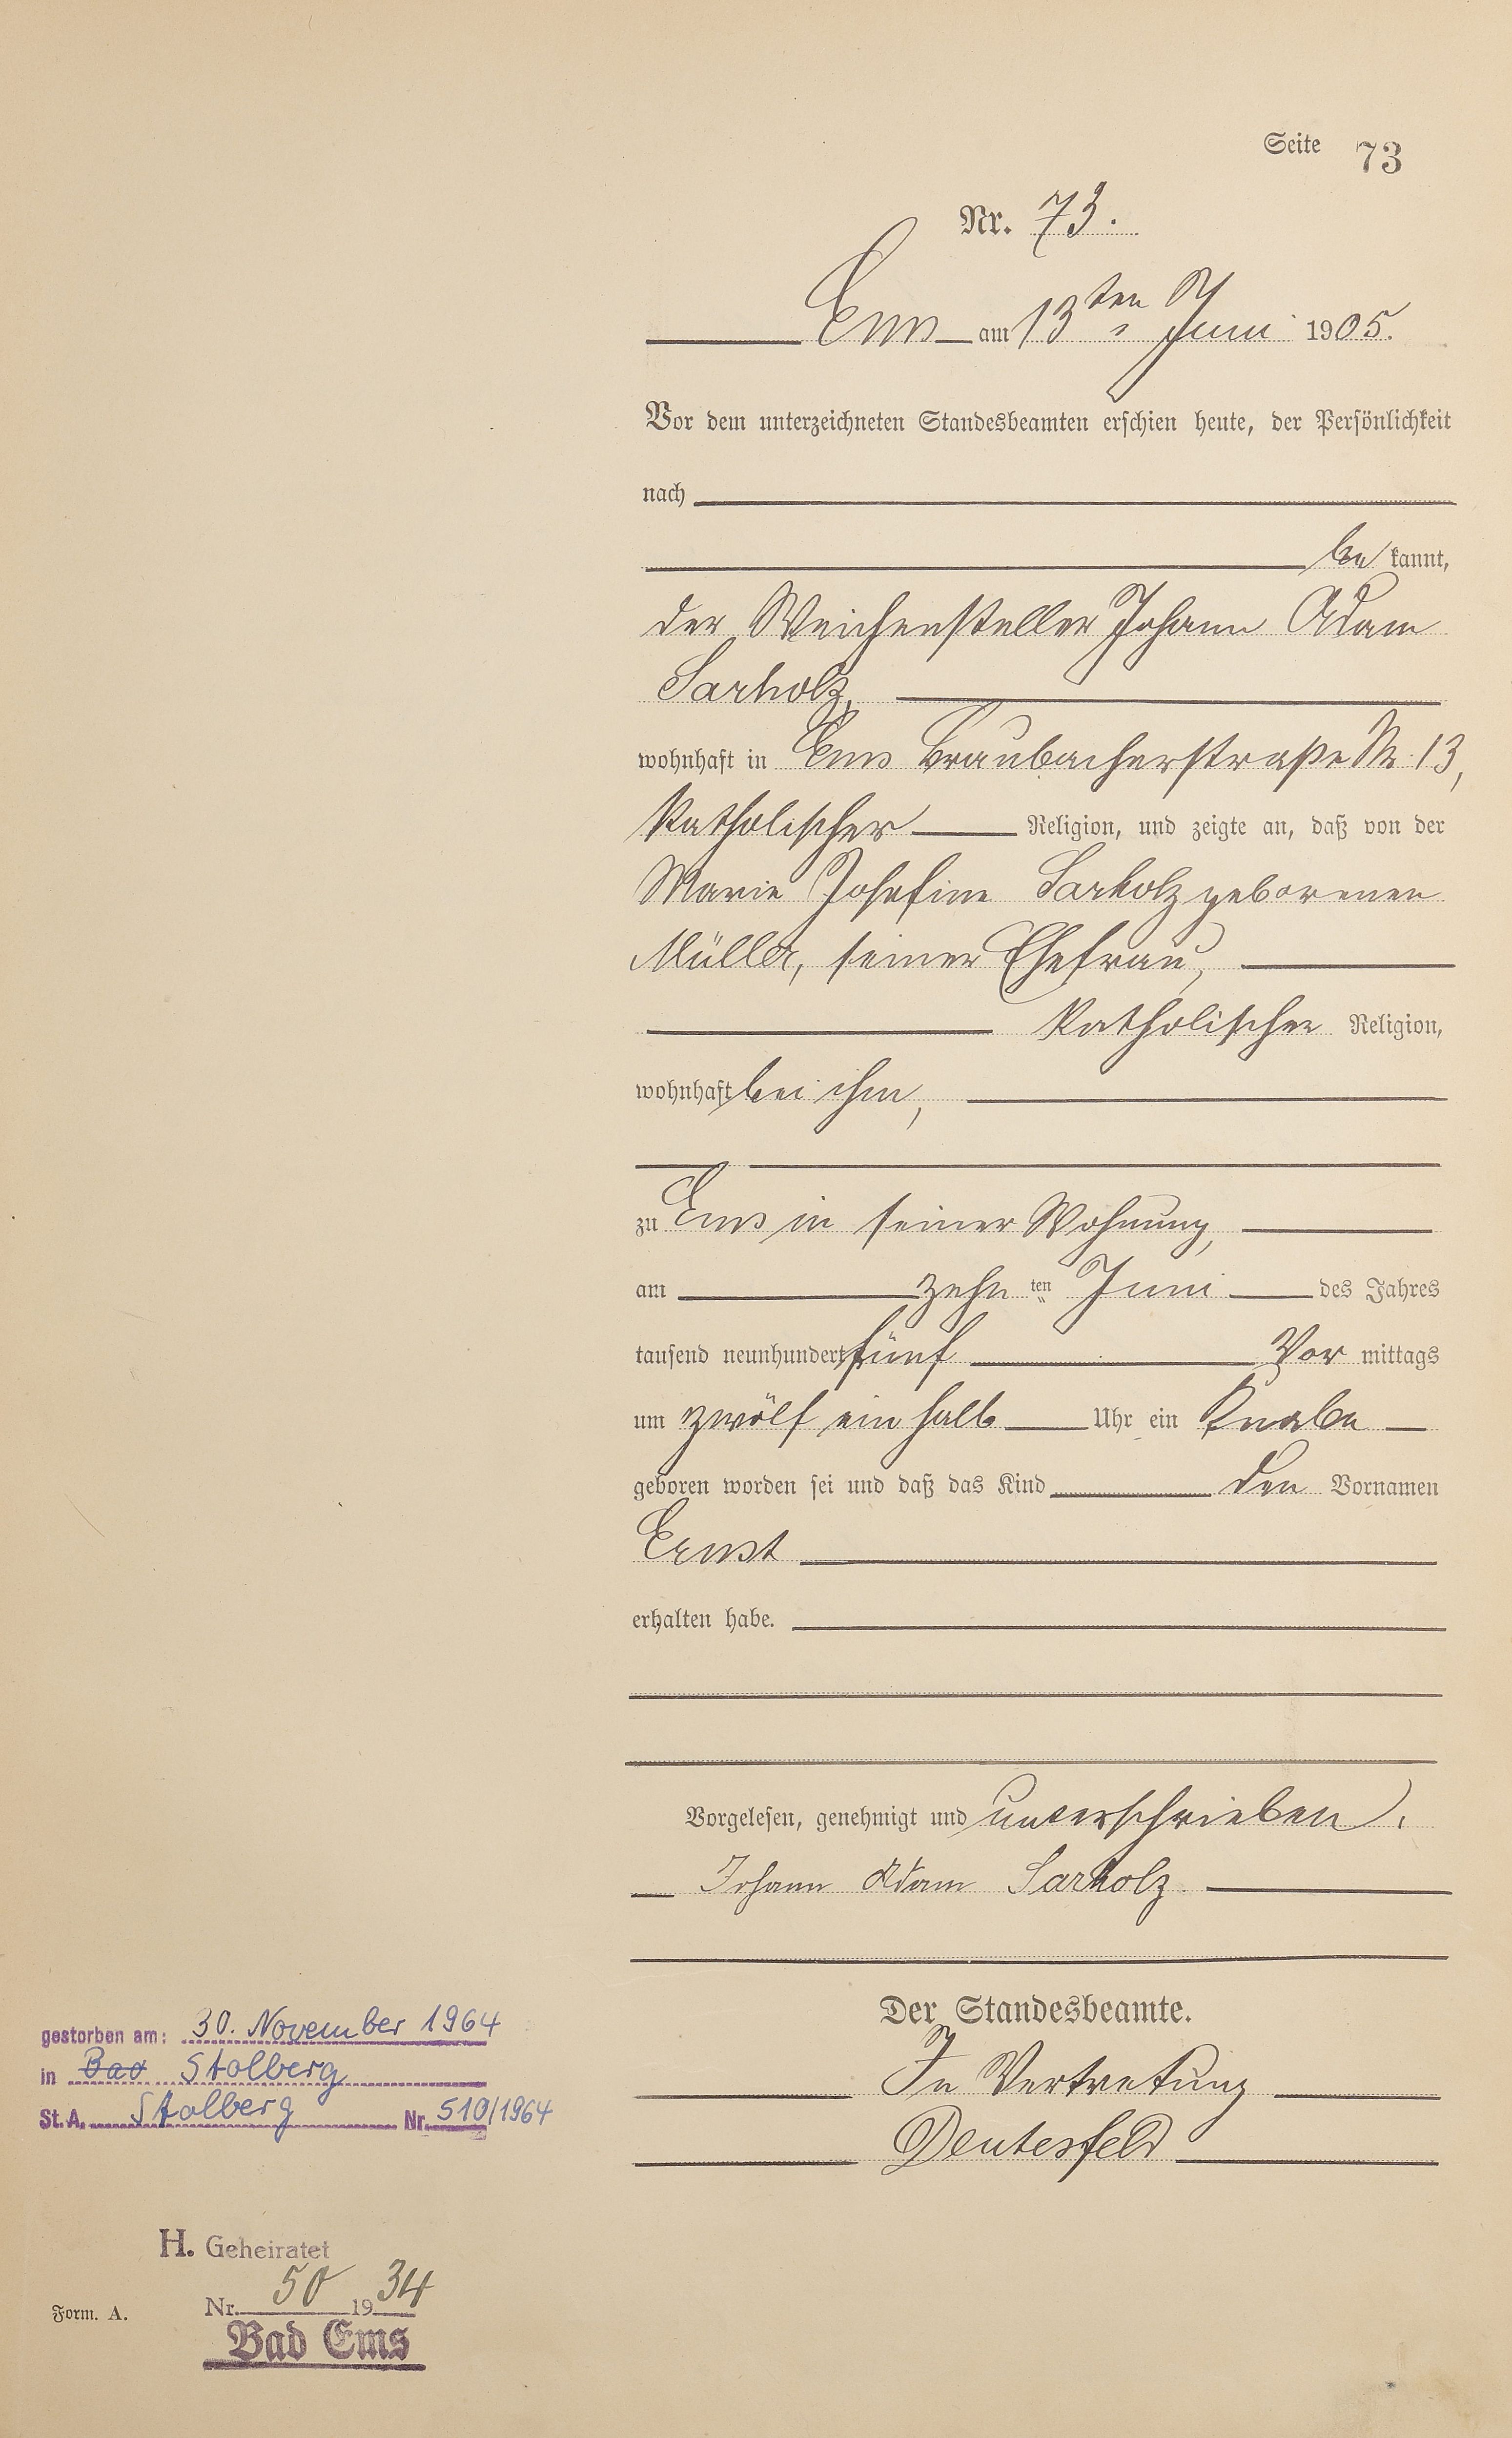 Seite 73
Nr. 73.
Ems am 13ten Juni 1905.
Vor dem unterzeichneten Standesbeamten erschien heute, der Persönlichkeit
nach
be kannt,
der Weichensteller Johann Adam
Sarholz,
wohnhaft in Ems Braubacherstraße Nr. 13,
katholischer Religion, und zeigte an, daß von der
Marie Josefine Sarholz geborenen
Müller, seiner Ehefrau,
katholischer Religion,
wohnhaft bei ihm,
zu Ems in seiner Wohnung,
am zehn ten Juni des Jahres
tausend neunhundert fünf Vor mittags
um zwölf ein halb Uhr ein Knabe
geboren worden sei und daß das Kind den Vornamen
Ernst
erhalten habe.
Vorgelesen, genehmigt und unterschrieben.
Johann Adam Sarholz
Der Standesbeamte.
In Vertretung
Deutesfeld
gestorben am: 30. November 1964
in Bad Stolberg
St.A. Stolberg Nr. 510/1964
H. Geheiratet
Nr. 50 1934
Bad Ems
Form. A.